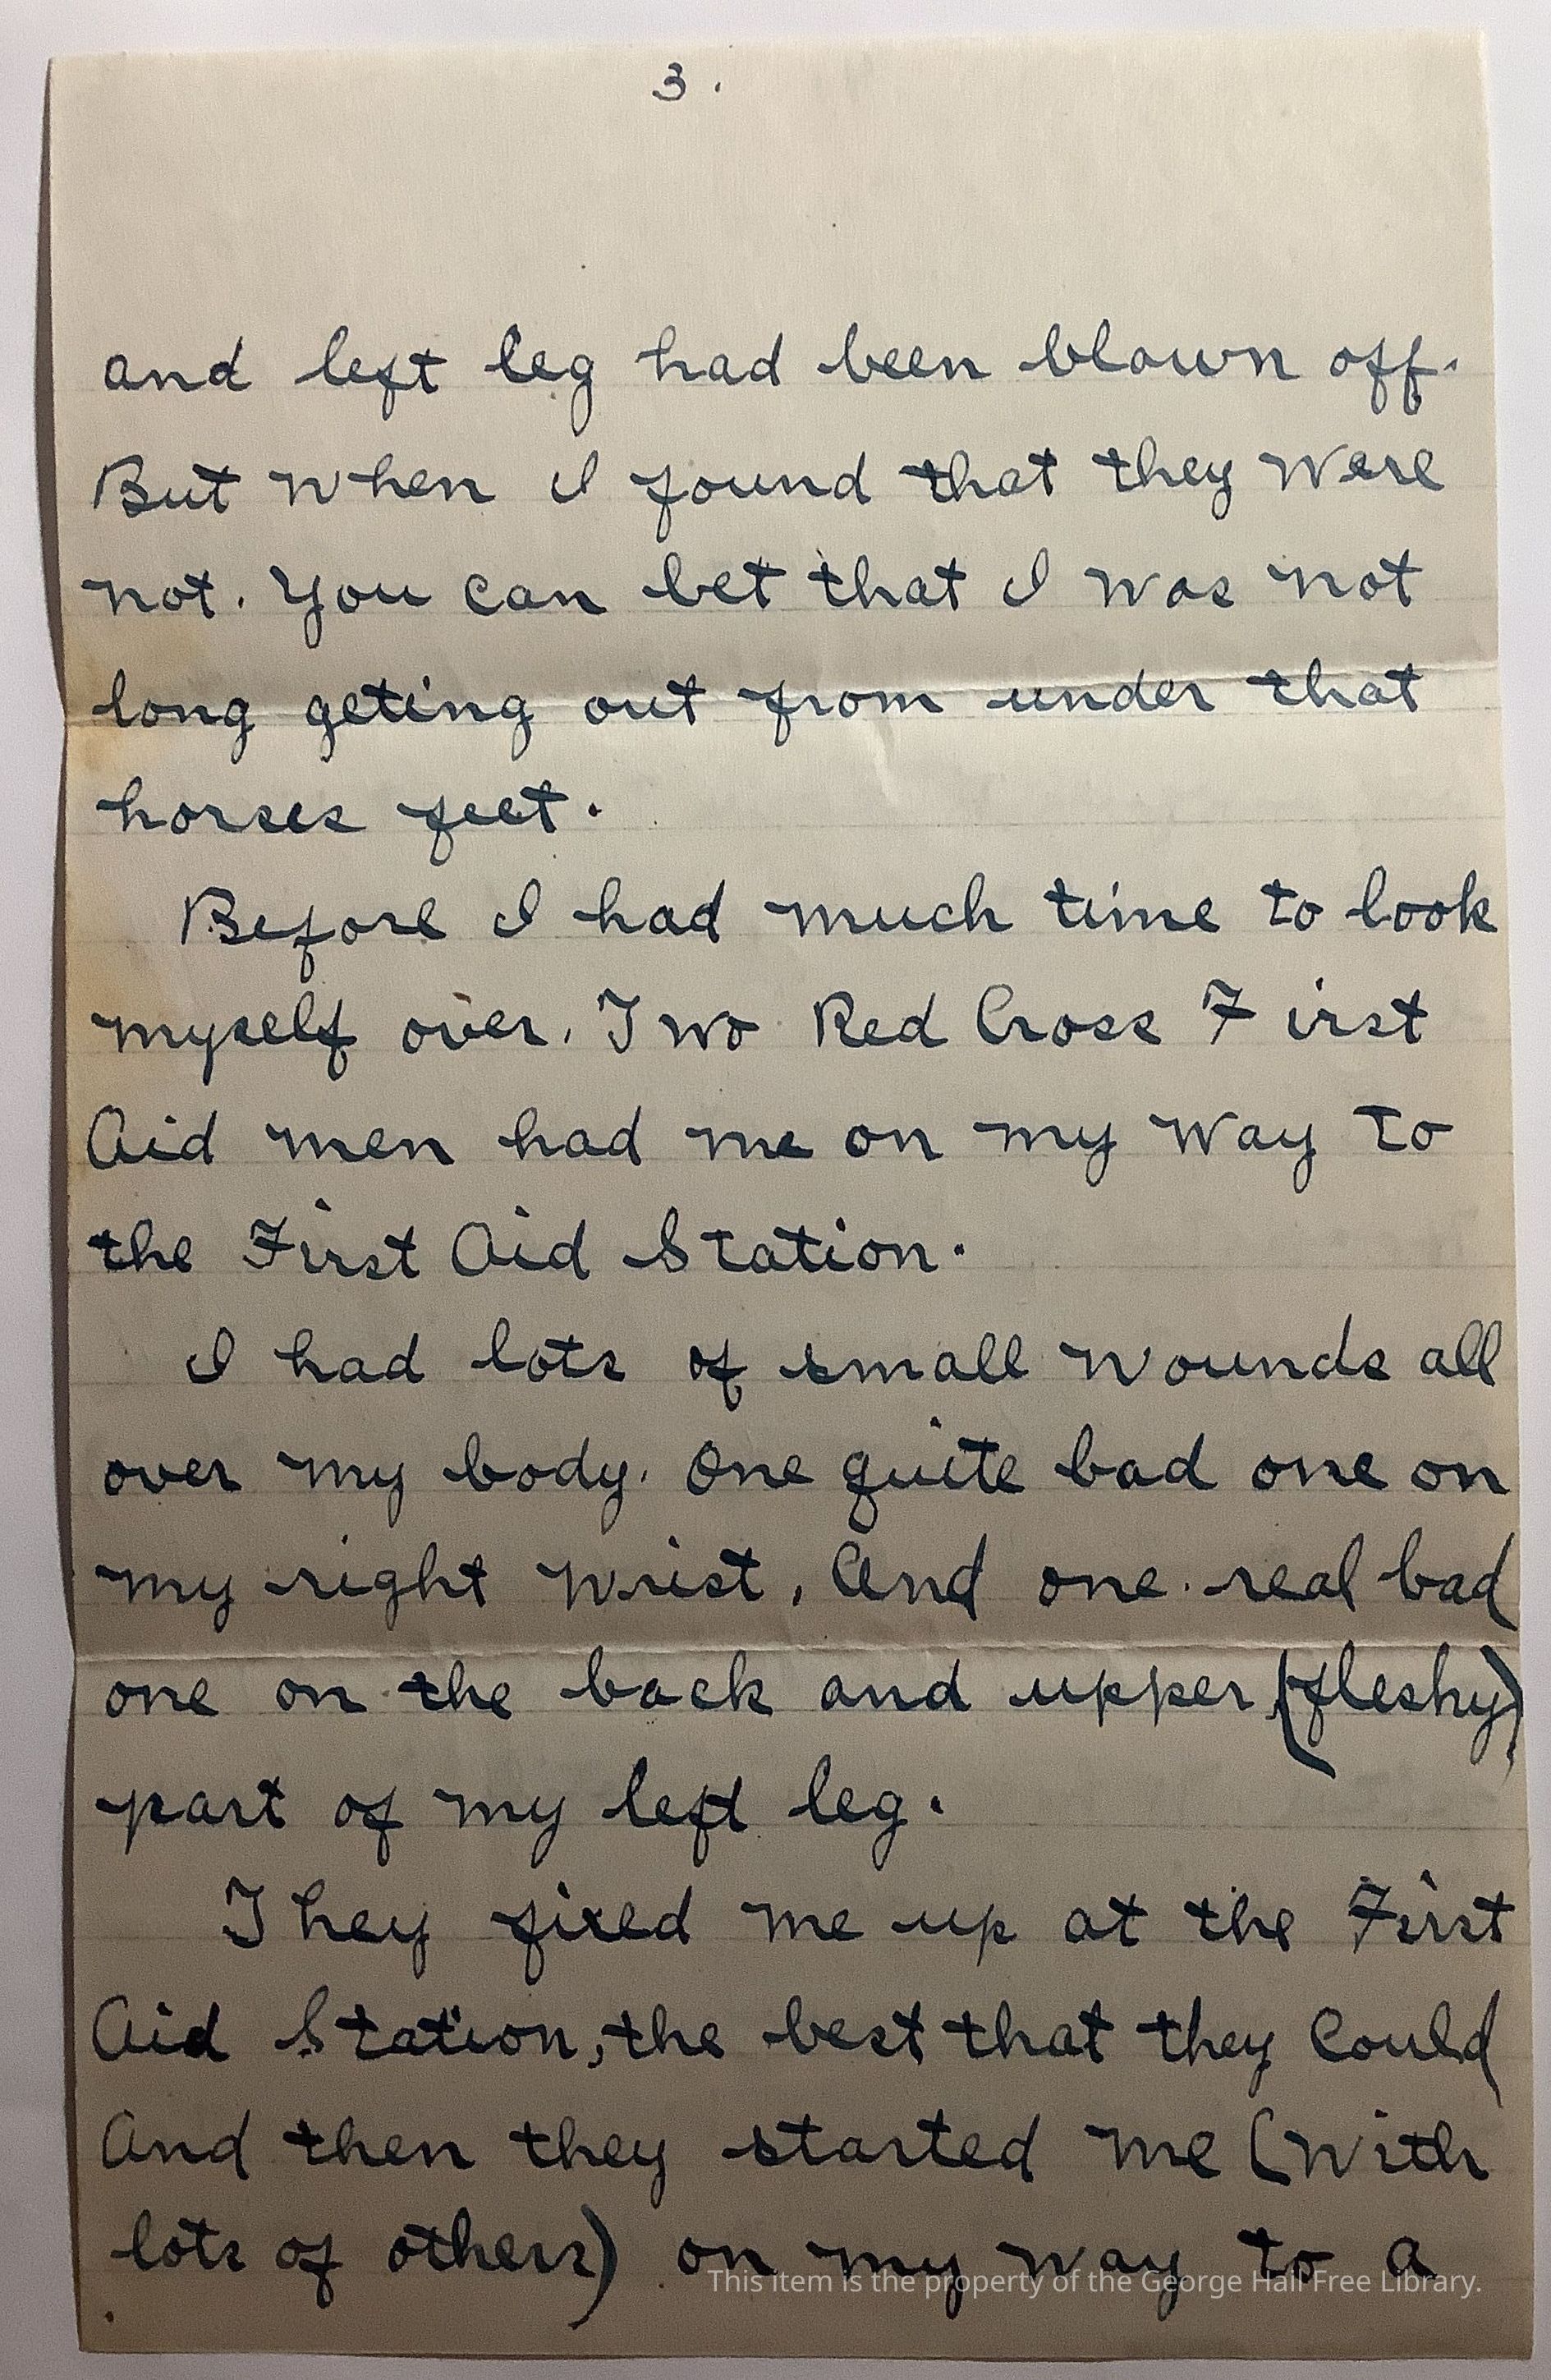 3.
and left leg had been blown off.
But when I found that they were
not. You can bet that I was not
long geting out from under that
horses feet.
Before I had much time to look
myself over. Two Red Cross First
Aid men had me on my way to
the First Aid Station.
I had lots of small wounds all
over my body. One quite bad one on
my right wrist, And one real bad
one on the back and upper (fleshy)
part of my left leg.
They fixed me up at the First
Aid Station, the best that they could
And then they started me (with
lots of others) on my way to a
This item is the property of the George Hall Free Library.